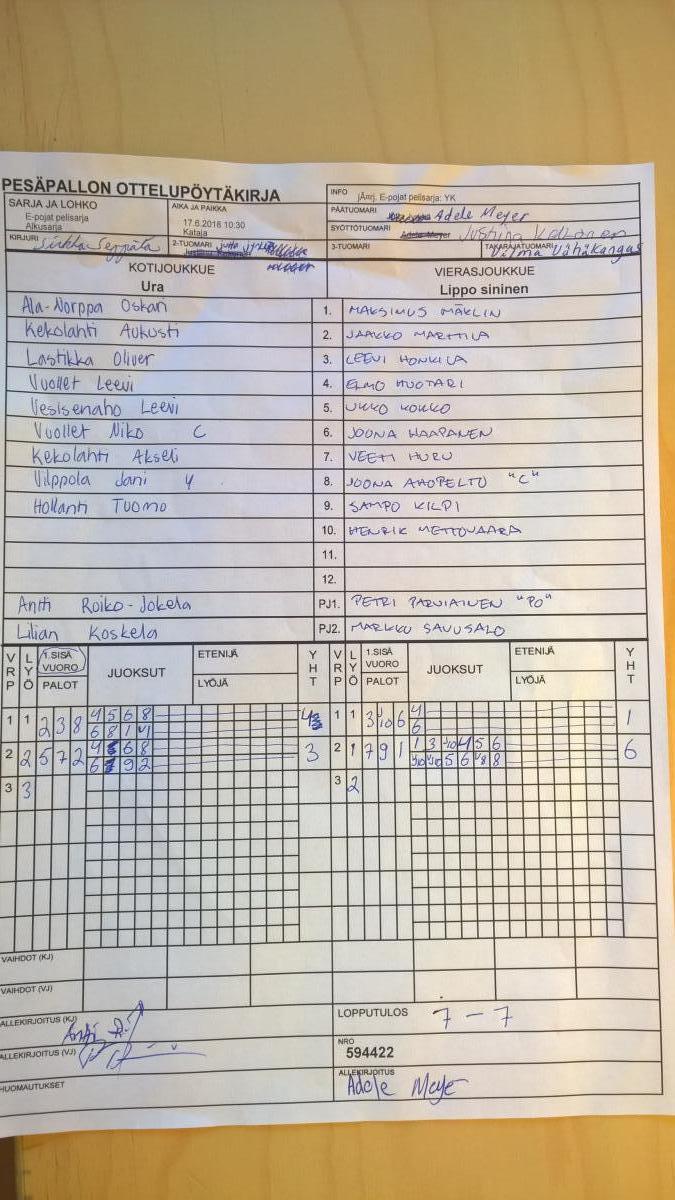 PESÄPALLON OTTELUPÖYTÄKIRJA
INFO jÄrrj. E-pojat pelisarja: YK
SARJA JA LOHKO
E-pojat pelisarja
Alkusarja
AIKA JA PAIKKA
17.6.2018 10:30
Kataja
PÄÄTUOMARI Adele Meyer
SYÖTTÖTUOMARI Adele Meyer Justiina
KIRJURI Sirkka Seppälä
2-TUOMARI
3-TUOMARI
TAKARAJATUOMARI Vilma Vähäkangas
KOTIJOUKKUE
Ura
VIERASJOUKKUE
Lippo sininen
Ala-Norppa Oskari 1. MAKSIMUS MÄKLIN
Kekolahti Aukusti 2. JAAKKO MARTTILA
Lastikka Oliver 3. LEEVI HONKILA
Vuollet Leevi 4. ELMO HUOTARI
Vesisenaho Leevi 5. UKKO KOKKO
Vuollet Niko C 6. JOONA HAAPANEN
Kekolahti Akseli 7. VEETI HURU
Vilppola Jani Y 8. JOONA AHOPELTO "C"
Hollanti Tuomo 9. SAMPO KILPI
10. HENRIK METTOVAARA
11.
12.
Antti Roiko-Jokela PJ1. PETRI PARVIAINEN "PO"
Lilian Koskela PJ2. MARKKU SAVUSALO
VRP LYÖ 1.SISÄ VUORO PALOT JUOKSUT ETENIJÄ LYÖJÄ YHT VRP LYÖ 1.SISÄ VUORO PALOT JUOKSUT ETENIJÄ LYÖJÄ YHT
1 1 2 3 8 4 5 6 8 4 1 1 3 10 6 4 1
6 8 1 4 6
2 2 5 7 2 4 6 8 3 2 1 7 9 1 1 3 10 4 5 6 6
6 9 2 10 10 5 6 8 8
3 3 3 2
VAIHDOT (KJ)
VAIHDOT (VJ)
ALLEKIRJOITUS (KJ)
LOPPUTULOS 7 - 7
ALLEKIRJOITUS (VJ)
NRO
594422
HUOMAUTUKSET
ALLEKIRJOITUS
Adele Meyer